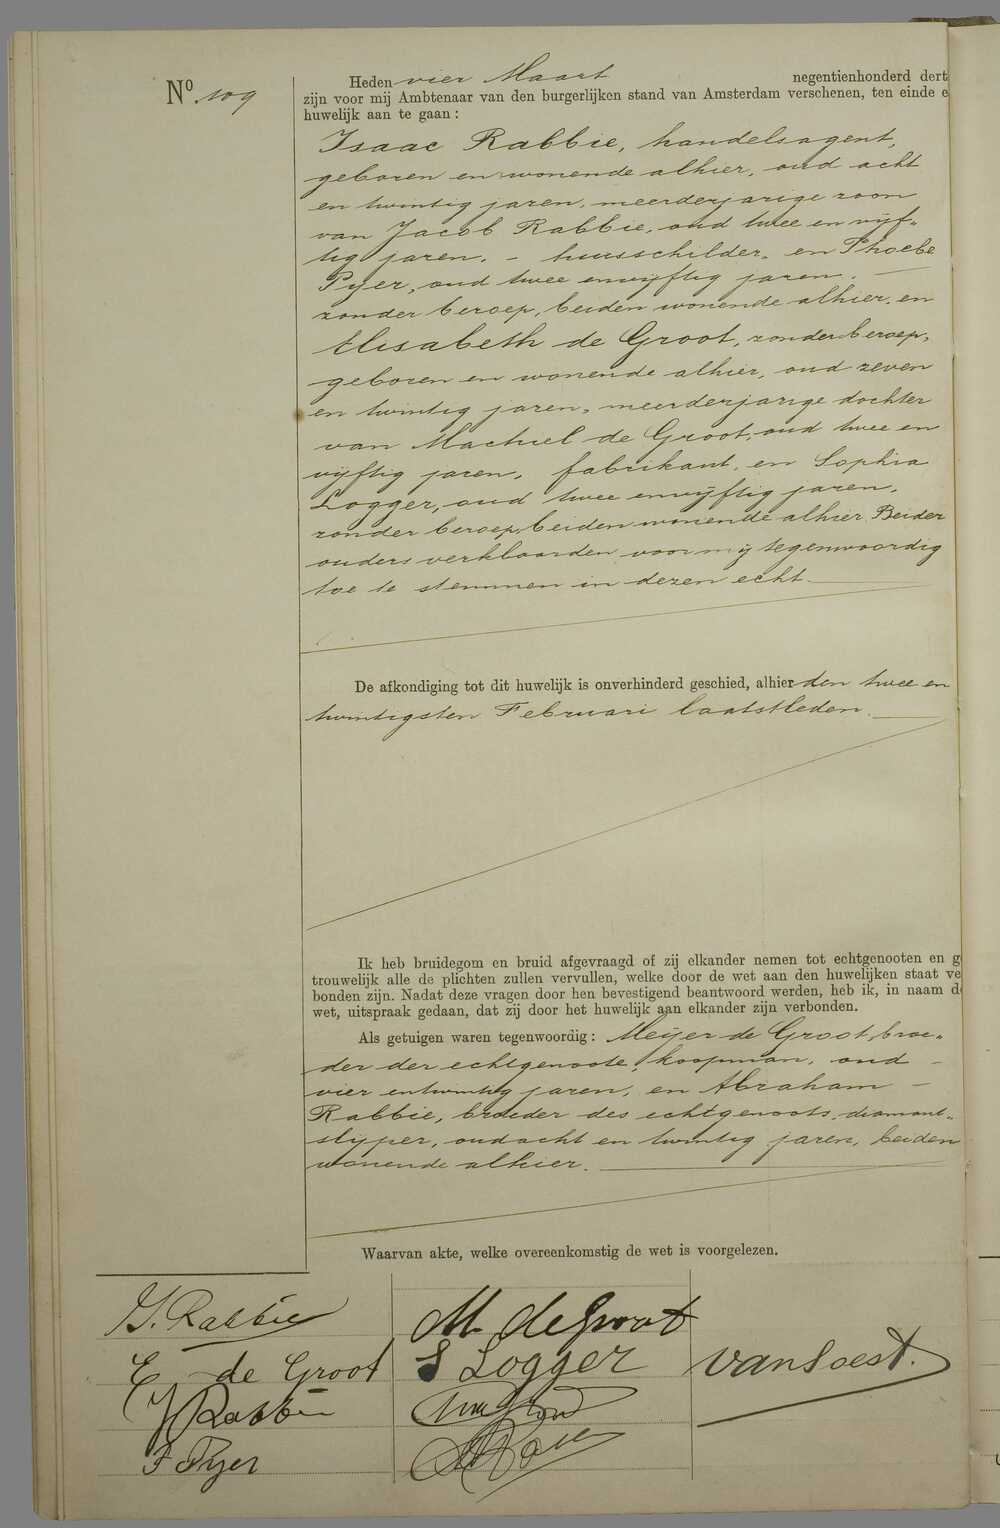 Nº 109
Heden vier Maart negentienhonderd dert
zijn voor mij Ambtenaar van den burgerlijken stand van Amsterdam verschenen, ten einde e
huwelijk aan te gaan:
Isaac Rabbie, handelsagent,
geboren en wonende alhier, oud acht
en twintig jaren, meerderjarige zoon
van Jacob Rabbie, oud twee en vijf„
tig jaren, – huisschilder, en Phoebe
Pijer, oud twee envijftig jaren, —
zonder beroep, beiden wonende alhier, en
Elisabeth de Groot, zonder beroep,
geboren en wonende alhier, oud zeven
en twintig jaren, meerderjarige dochter
van Machiel de Groot, oud twee en
vijftig jaren, fabrikant, en Sophia
Logger, oud twee envijftig jaren,
zonder beroep, beiden wonende alhier. Beider
ouders verklaarden voor mij tegenwoordig
toe te stemmen in dezen echt.
De afkondiging tot dit huwelijk is onverhinderd geschied, alhier den twee en
twintigsten Februari laatstleden.
Ik heb bruidegom en bruid afgevraagd of zij elkander nemen tot echtgenooten en g
trouwelijk alle de plichten zullen vervullen, welke door de wet aan den huwelijken staat ve
bonden zijn. Nadat deze vragen door hen bevestigend beantwoord werden, heb ik, in naam d
wet, uitspraak gedaan, dat zij door het huwelijk aan elkander zijn verbonden.
Als getuigen waren tegenwoordig: Meijer de Groot, broe„
der der echtgenoote, koopman, oud –
vier entwintig jaren, en Abraham –
Rabbie, broeder des echtgenoots, diamant„
slijper, oud acht en twintig jaren, beiden
wonende alhier.
Waarvan akte, welke overeenkomstig de wet is voorgelezen.
I. Rabbie
M. de Groot
E. de Groot
S Logger
van Soest.
J Rabbie
F Pijer